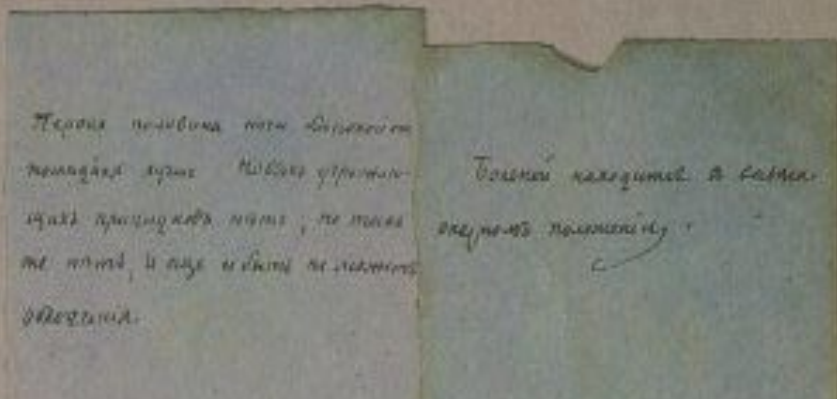 Первая половина ночи безпокойная
последняя лучше. Новыхъ угрожаю-
щихъ признаковъ нѣтъ; но также
же нѣтъ, и еще и быть не можетъ
облегченія.
Больной находится въ весьма
опасномъ положеніи.